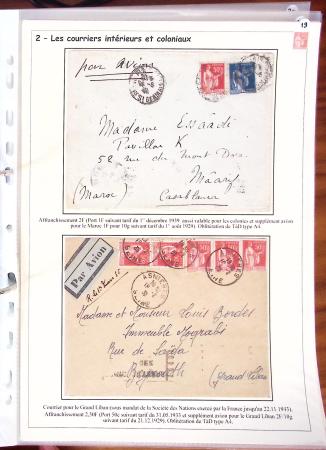 19
2 - Les courriers intérieurs et coloniaux
par avion
Madame Essaâdi
Pavillon K
52 rue du Mont Dore
Mâarif
(Maroc)
Casablanca
Affranchissement 2F (Port 1F suivant tarif du 1er décembre 1939 aussi valable pour les colonies et supplément avion
pour le Maroc 1F pour 10g suivant tarif du 1er août 1929). Oblitération de TàD type A4.
Par Avion
ASNIERES
SEINE
Madame et Monsieur Louis Bordes
Immeuble Mograbi
Rue de
Beyrouth
(Grand Liban)
Courrier pour le Grand Liban (sous mandat de la Société des Nations exercé par la France jusqu'au 22.11.1943).
Affranchissement 2,50F (Port 50c suivant tarif du 31.05.1933 et supplément avion pour le Grand Liban 2F/10g
suivant tarif du 21.12.1929). Oblitération de TàD type A4.